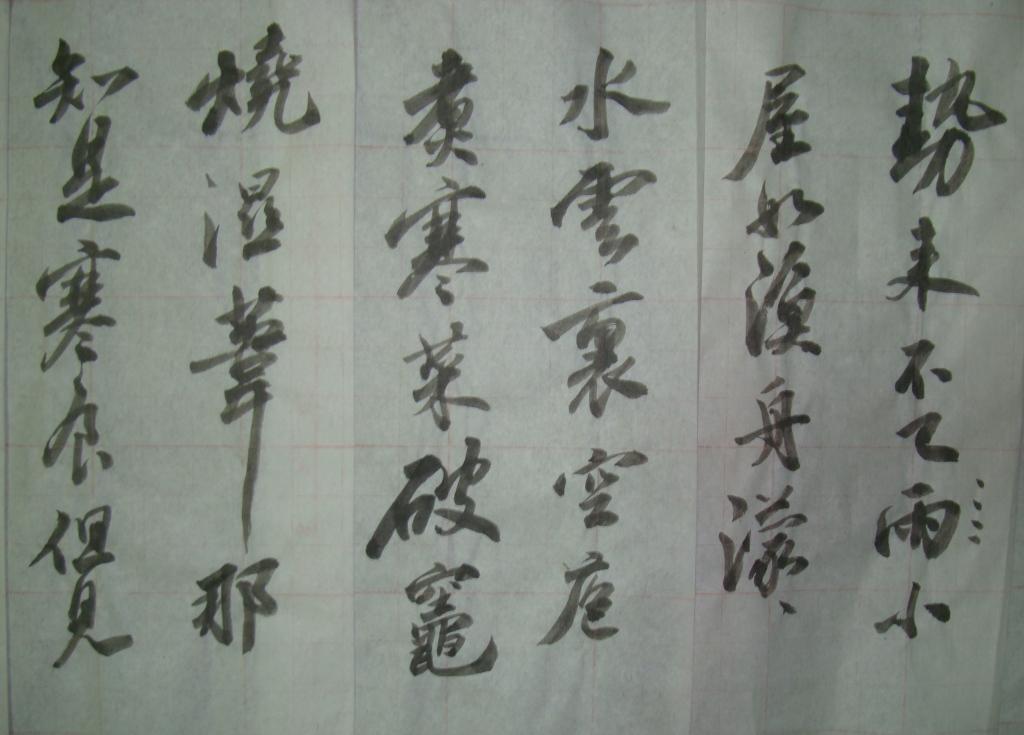 勢来不已雨小
屋如漁舟濛〻
水雲裏空庖
煮寒菜破竈
燒湿葦那
知是寒食但見